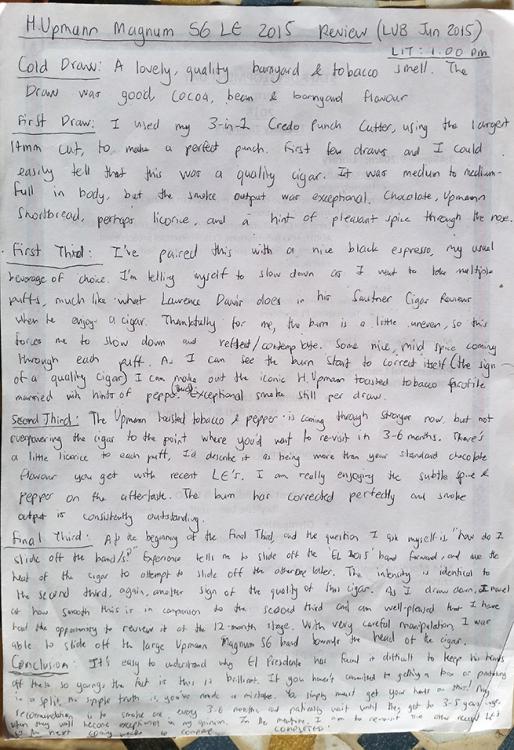 H.Upmann Magnum 56 LE 2015 Review (LUB Jun 2015)
LIT: 1.00 pm
Cold Draw: A lovely, quality barnyard & tobacco smell. The
Draw was good, cocoa, bean & barnyard flavour
First Draw: I used my 3-in-1 Credo Punch Cutter, using the largest
14mm cut, to make a perfect punch. First few draws and I could
easily tell that this was a quality cigar. It was medium to medium-
full in body, but the smoke output was exceptional. Chocolate, Upmann
Shortbread, perhaps licorice, and a hint of pleasant spice through the nose.
First Third: I've paired this with a nice black espresso, my usual
beverage of choice. I'm telling myself to slow down as I want to take multiple
puffs, much like what Lawrence Davis does in his Sautner Cigar Reviews
when he enjoys a cigar. Thankfully for me, the burn is a little uneven, so this
forces me to slow down and reflect/contemplate. Some nice, mild spice coming
through each puff. As I can see the burn start to correct itself (the sign
of a quality cigar) I can make out the iconic H.Upmann toasted tobacco profile
married with hints of pepper. Exceptional smoke still per draw.
Second Third: The Upmann toasted tobacco & pepper is coming through stronger now, but not
overpowering the cigar to the point where you'd want to re-visit in 3-6 months. There's
a little licorice to each puff, I'd describe it as being more than your standard chocolate
flavour you get with recent LE's. I am really enjoying the subtle spice &
pepper on the aftertaste. The burn has corrected perfectly and smoke
output is consistently outstanding.
Final Third: At the beginning of the Final Third, and the question I ask myself is "how do I
slide off the band/s?" Experience tells me to slide off the 'EL 2015' band forward, and use the
heat of the cigar to attempt to slide off the other one later. The intensity is identical to
the second third, again, another sign of the quality of this cigar. As I draw down, I marvel
at how smooth this is in comparison to the second third and am well-pleased that I have
had the opportunity to review it at the 12-month stage. With very careful manipulation, I was
able to slide off the large Upmann Magnum 56 band towards the head of the cigar.
Conclusion: It's easy to understand why El Presidente has found it difficult to keep his hands
off these so young; the fact is this is brilliant. If you haven't committed to getting a box or partaking
in a split, the simple truth is, you've made a mistake. You simply must get your hands on this! My
recommendation is to smoke one every 3-6 months and patiently wait until they get to 3-5 years age
when they will become exceptional in my opinion. In the meantime, I am to re-visit the other recent LE's
in the next coming weeks to compare. COMPLETED: